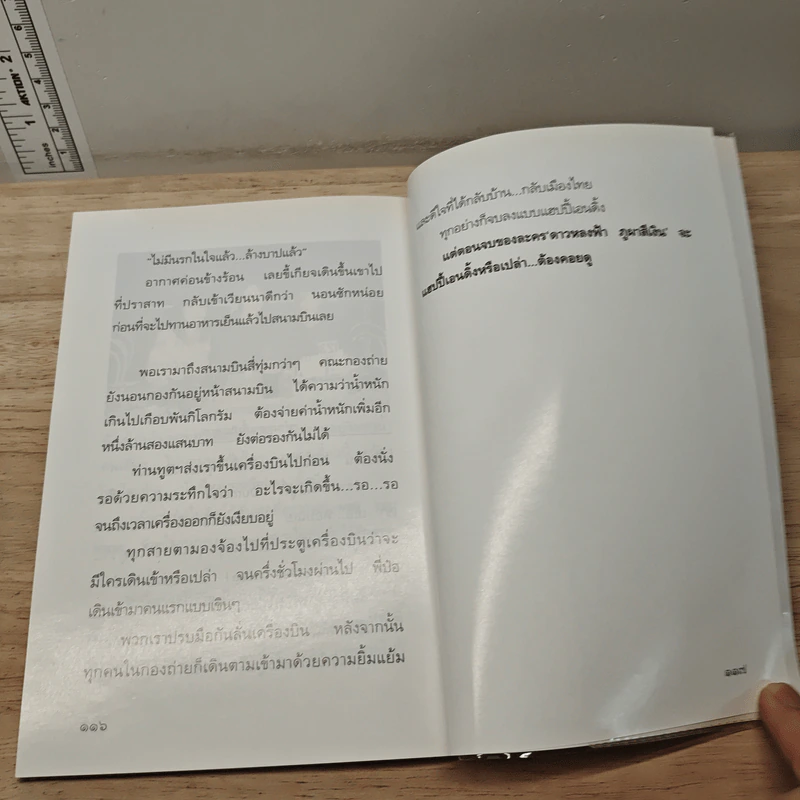 "ไม่มีนรกในใจแล้ว...ล้างบาปแล้ว"
อากาศค่อนข้างร้อน เลยขี้เกียจเดินขึ้นเขาไป
ที่ปราสาท กลับเข้าเวียนนาดีกว่า นอนซักหน่อย
ก่อนที่จะไปทานอาหารเย็นแล้วไปสนามบินเลย
พอเรามาถึงสนามบินสี่ทุ่มกว่าๆ คณะกองถ่าย
ยังนอนกองกันอยู่หน้าสนามบิน ได้ความว่าน้ำหนัก
เกินไปเกือบพันกิโลกรัม ต้องจ่ายค่าน้ำหนักเพิ่มอีก
หนึ่งล้านสองแสนบาท ยังต่อรองกันไม่ได้
ท่านทูตฯส่งเราขึ้นเครื่องบินไปก่อน ต้องนั่ง
รอด้วยความระทึกใจว่า อะไรจะเกิดขึ้น...รอ...รอ
จนถึงเวลาเครื่องออกก็ยังเงียบอยู่
ทุกสายตามองจ้องไปที่ประตูเครื่องบินว่าจะ
มีใครเดินเข้าหรือเปล่า จนครึ่งชั่วโมงผ่านไป พี่ป้อ
เดินเข้ามาคนแรกแบบเขินๆ
พวกเราปรบมือกันลั่นเครื่องบิน หลังจากนั้น
ทุกคนในกองถ่ายก็เดินตามเข้ามาด้วยความยิ้มแย้ม
๑๑๖
และดีใจที่ได้กลับบ้าน...กลับเมืองไทย
ทุกอย่างก็จบลงแบบแฮปปี้เอนดิ้ง
แต่ตอนจบของละคร'ดาวหลงฟ้า ภูผาสีเงิน' จะ
แฮปปี้เอนดิ้งหรือเปล่า...ต้องคอยดู
๑๑๗
inches
1
2
AKTION
1
2
3
4
5
6